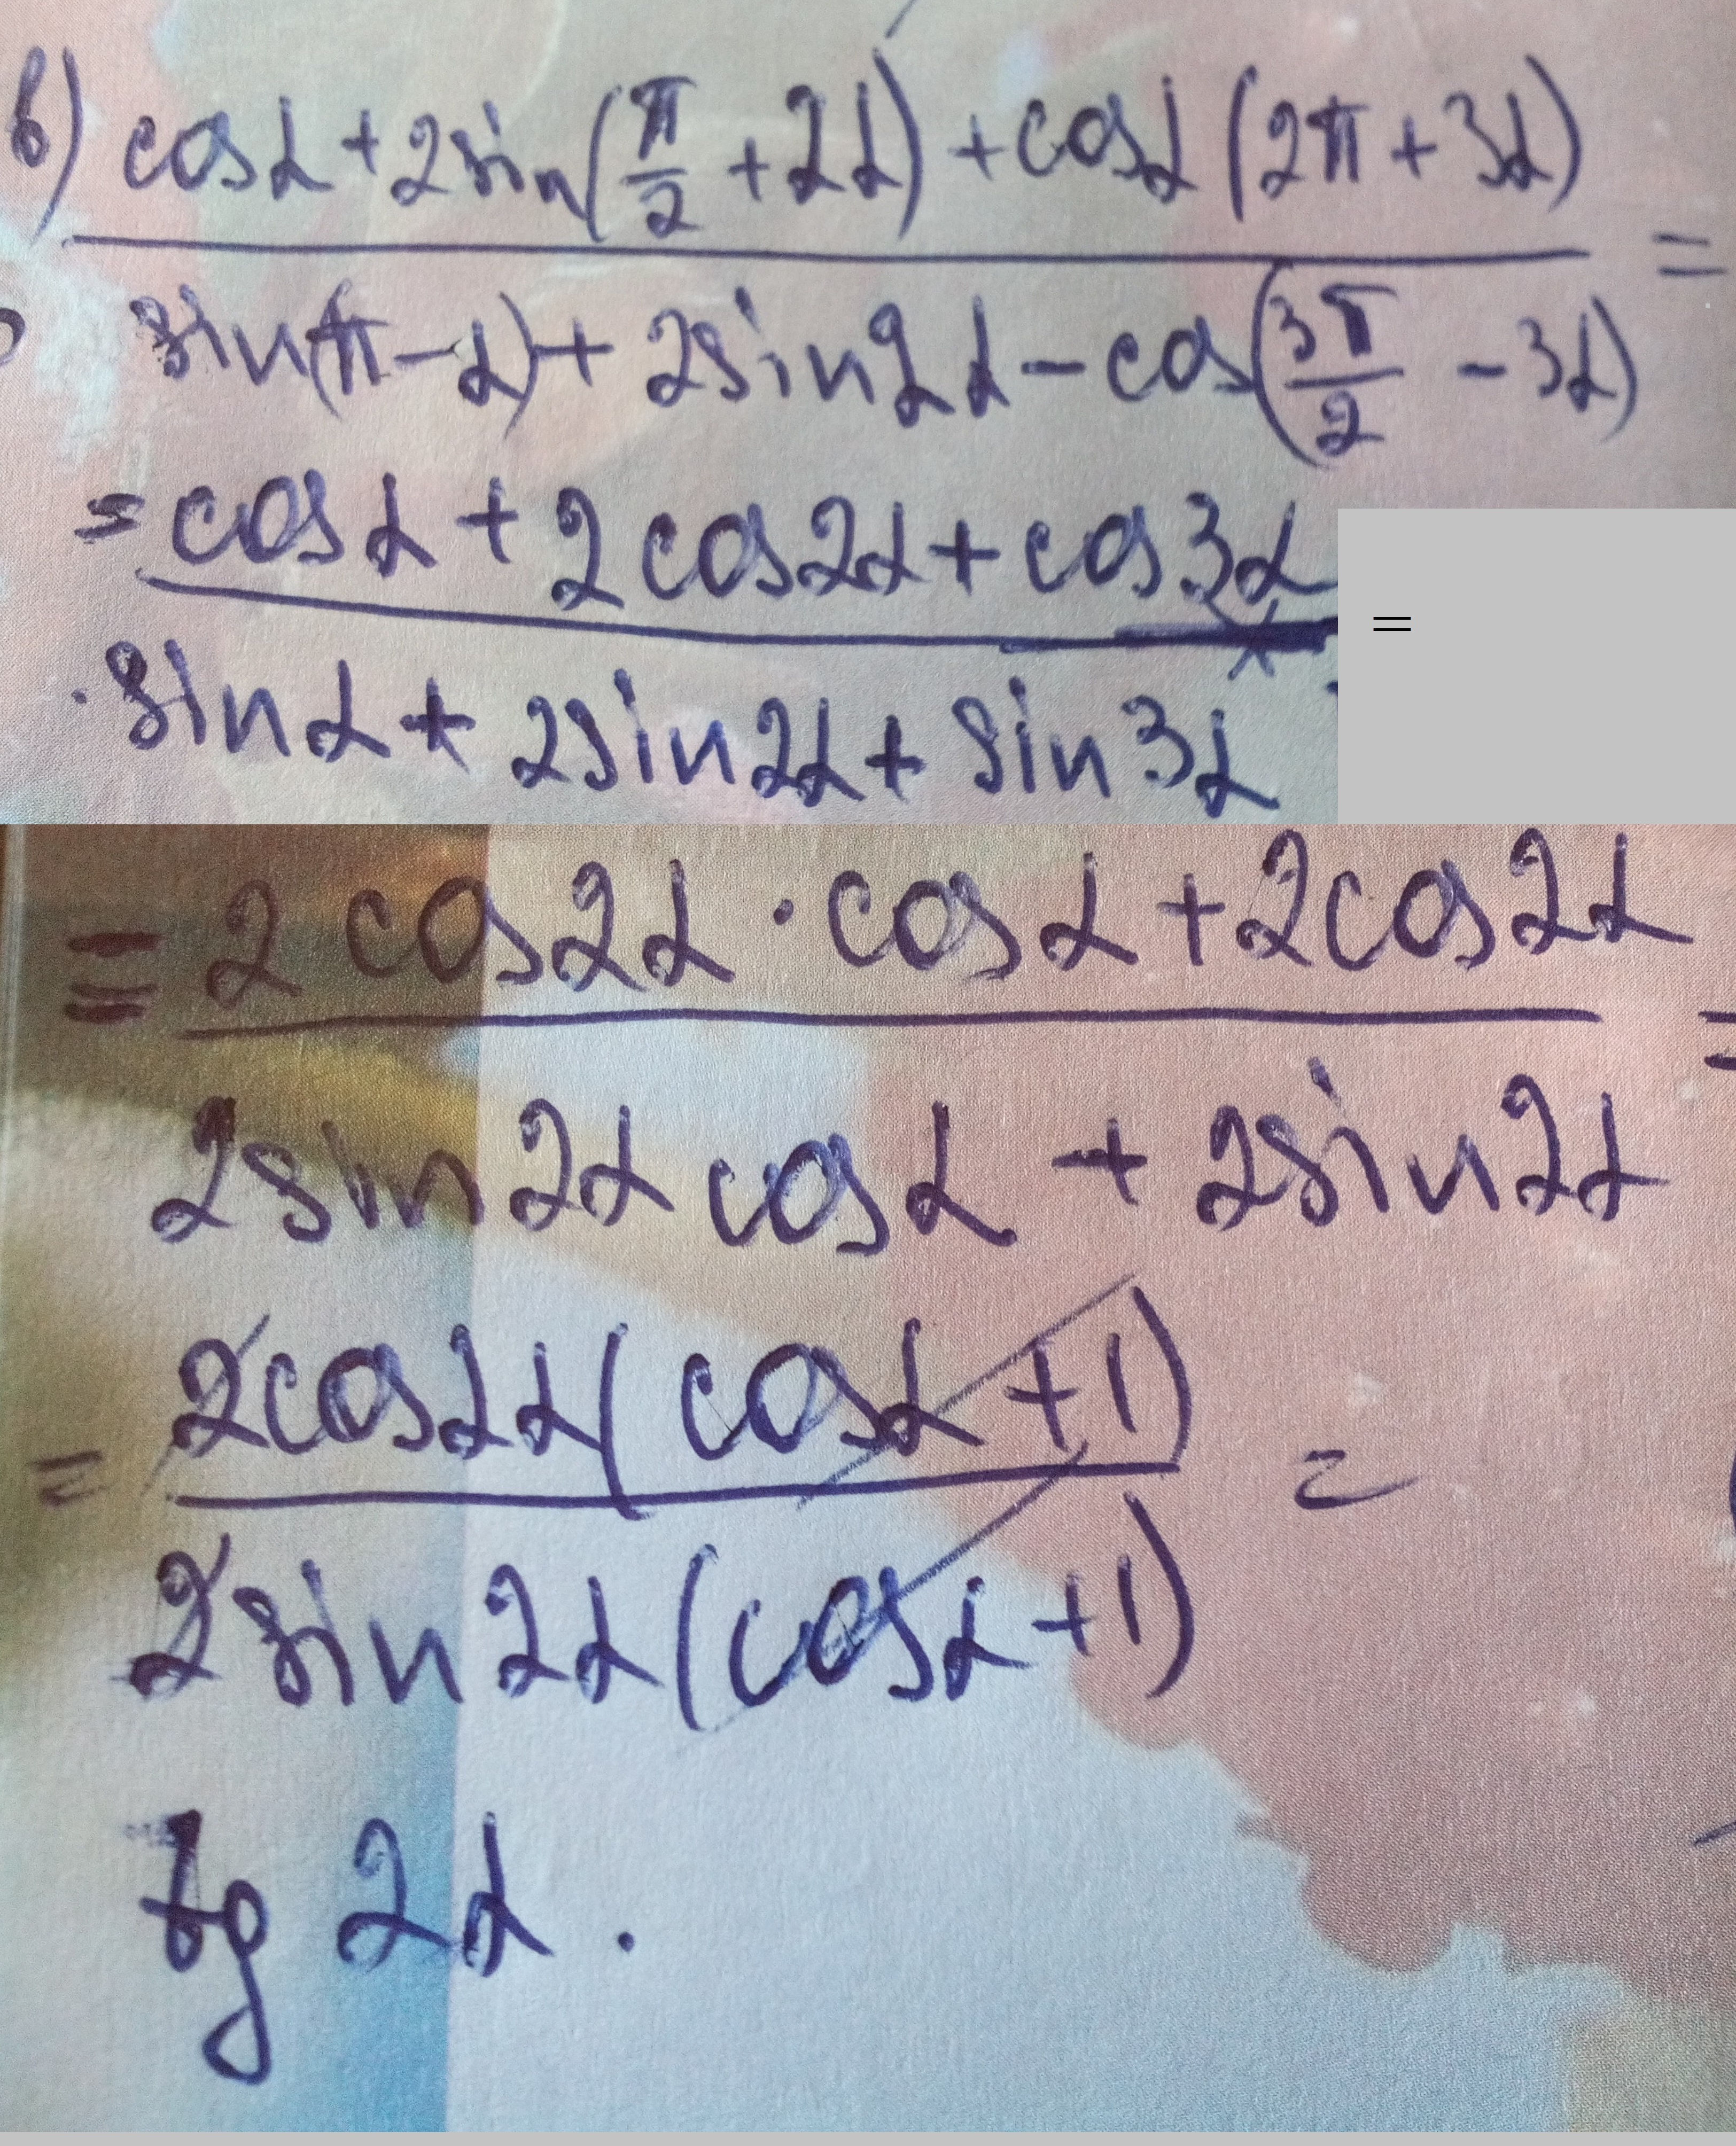 в) (cosα + 2sin(π/2 + 2α) + cosα(2π + 3α)) / (sin(π - α) + 2sin2α - cos(3π/2 - 3α)) =
= (cosα + 2cos2α + cos3α) / (sinα + 2sin2α + sin3α) =
= (2cos2α · cosα + 2cos2α) / (2sin2α cosα + 2sin2α) =
= (2cos2α(cosα + 1)) / (2sin2α(cosα + 1)) =
tg 2α.